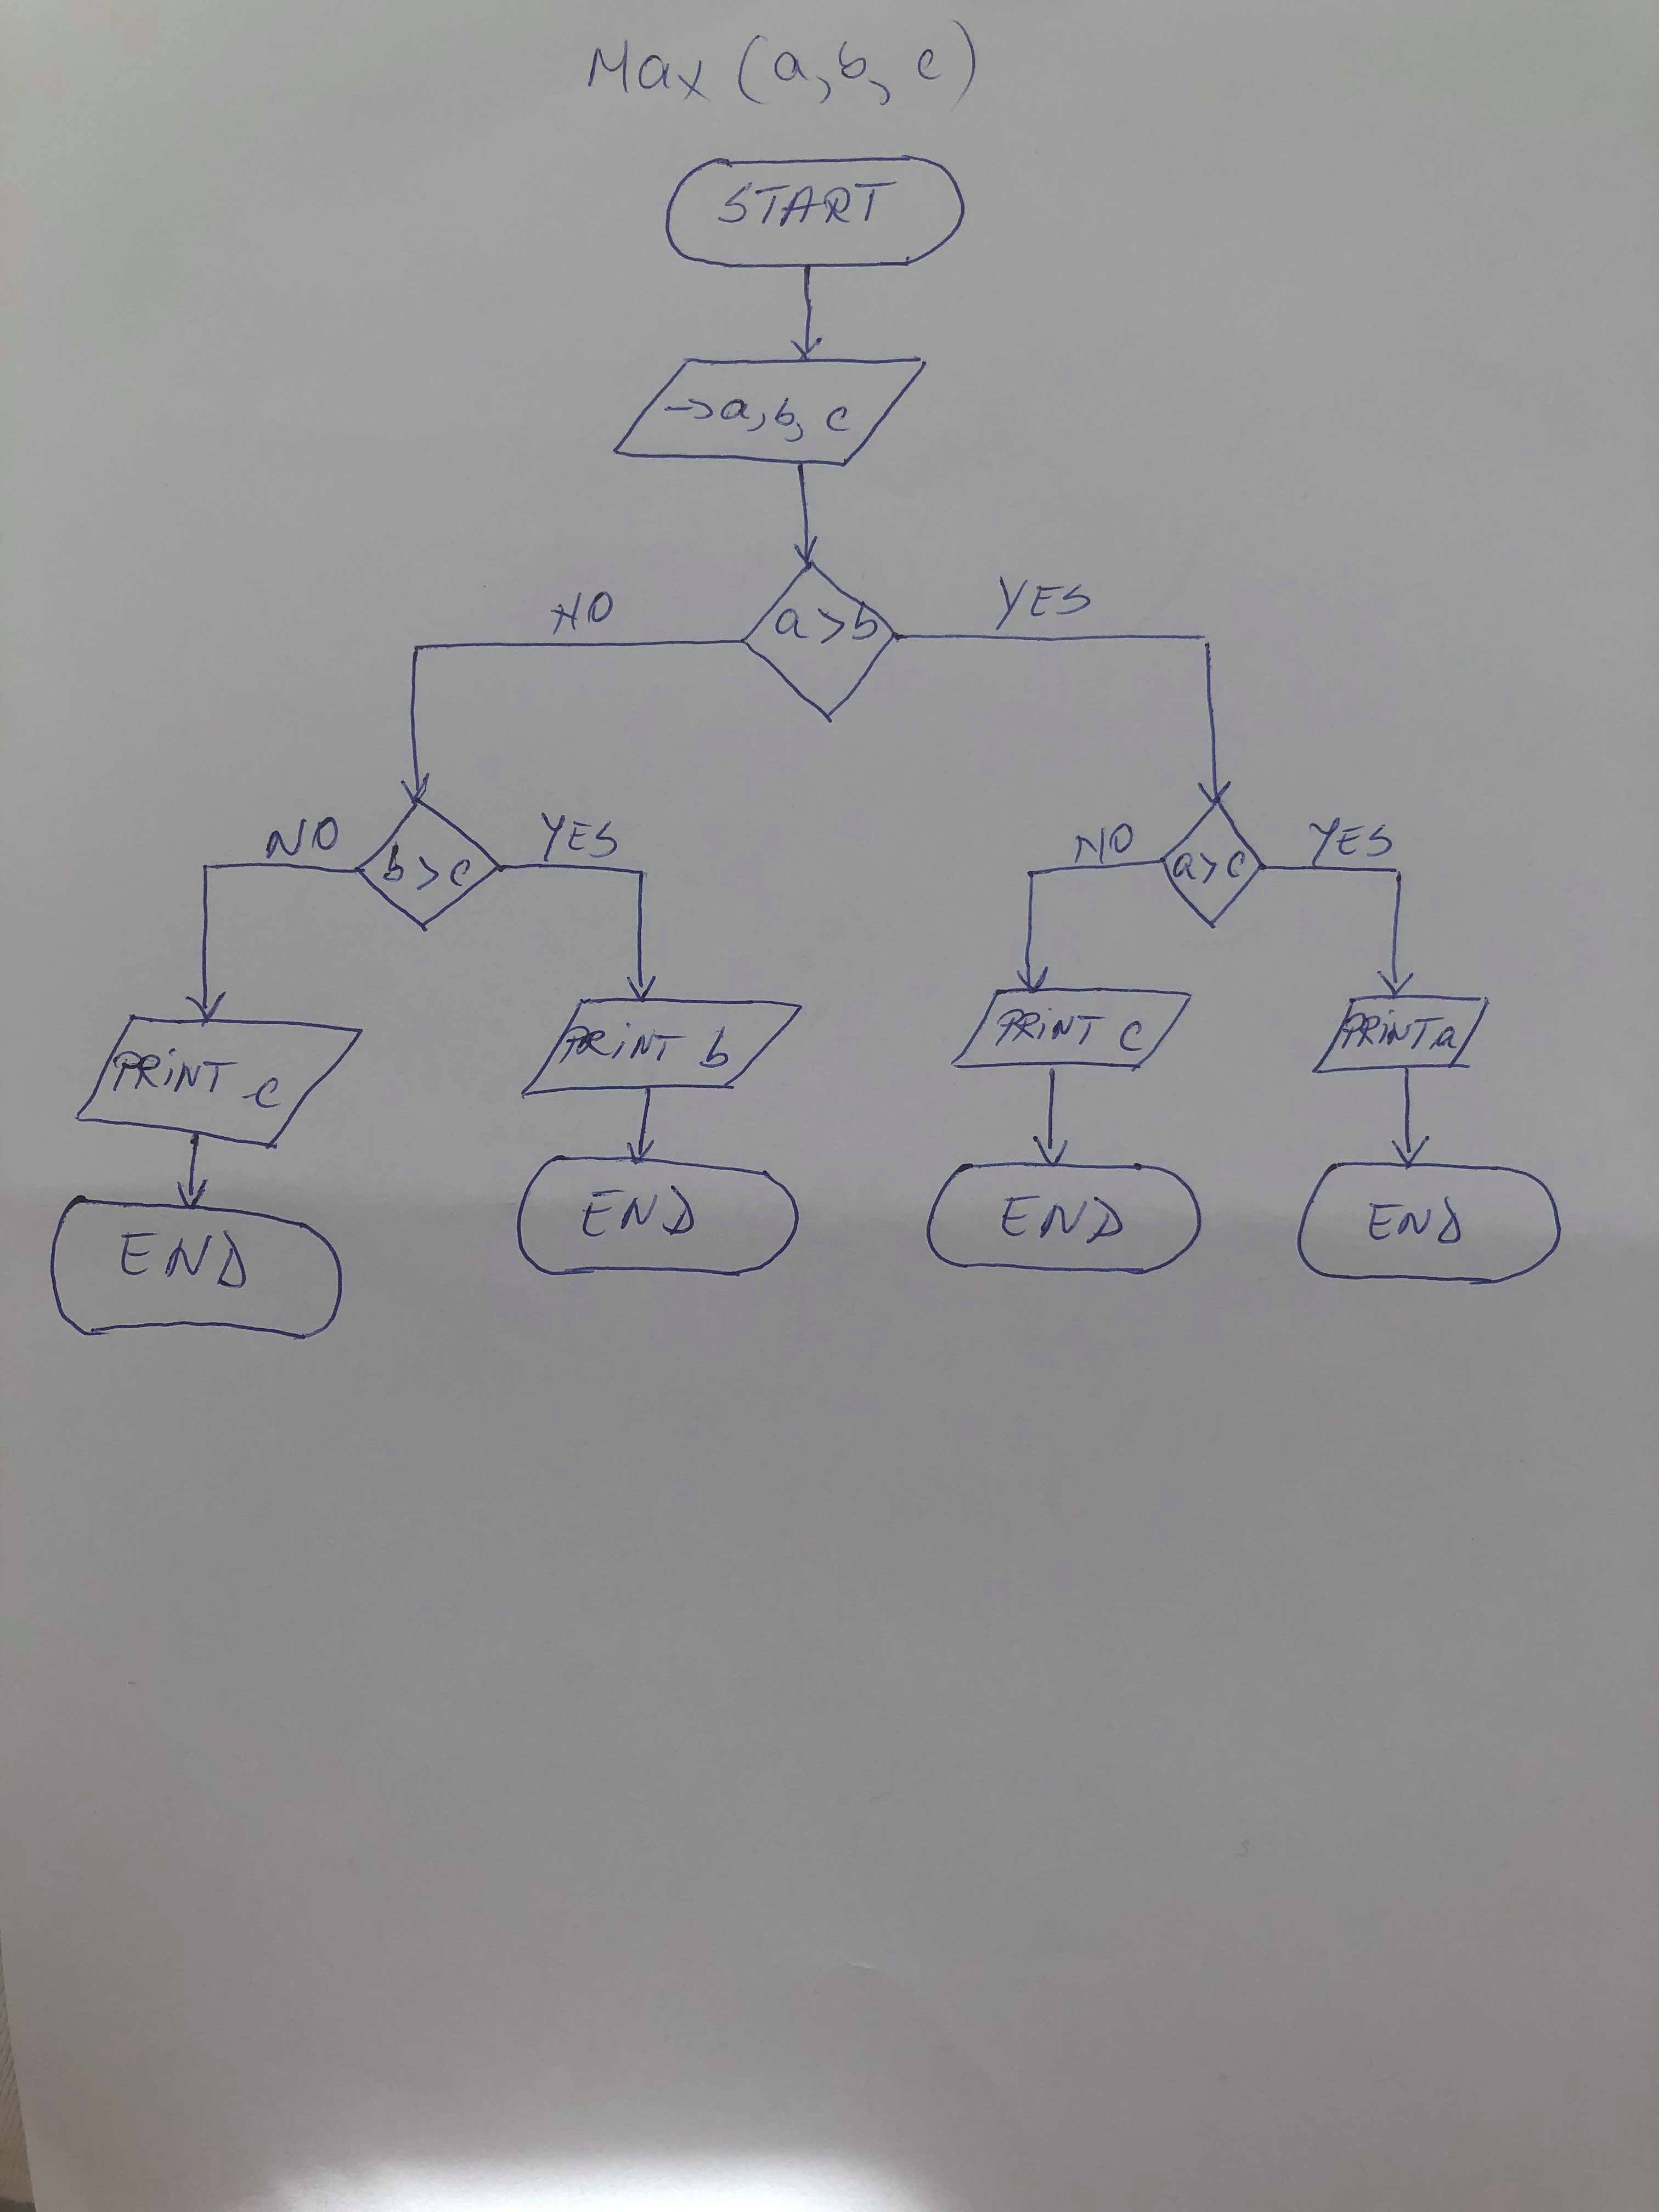 Max (a, b, c)
START
→a, b, c
a>b
NO
YES
b>c
NO
YES
a>c
NO
YES
PRiNT c
PRiNT b
PRiNT c
PRiNT a
END
END
END
END